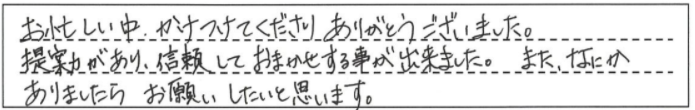 お忙しい中、かけつけてくださりありがとうございました。
提案力があり、信頼しておまかせする事が出来ました。 また、なにか
ありましたら お願いしたいと思います。